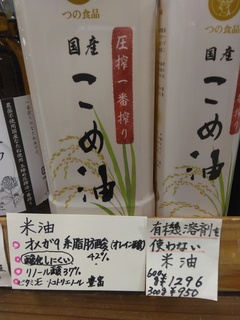 つの食品
圧搾一番搾り
国産
こめ油
つの食品
国産
こめ油
米油
オメガ9系脂肪酸(オレイン酸)
42%
酸化しにくい
リノール酸37%
ビタミンE トコトリエノール 豊富
有機溶剤を
使わない
米油
600g
¥1296
300g ¥950